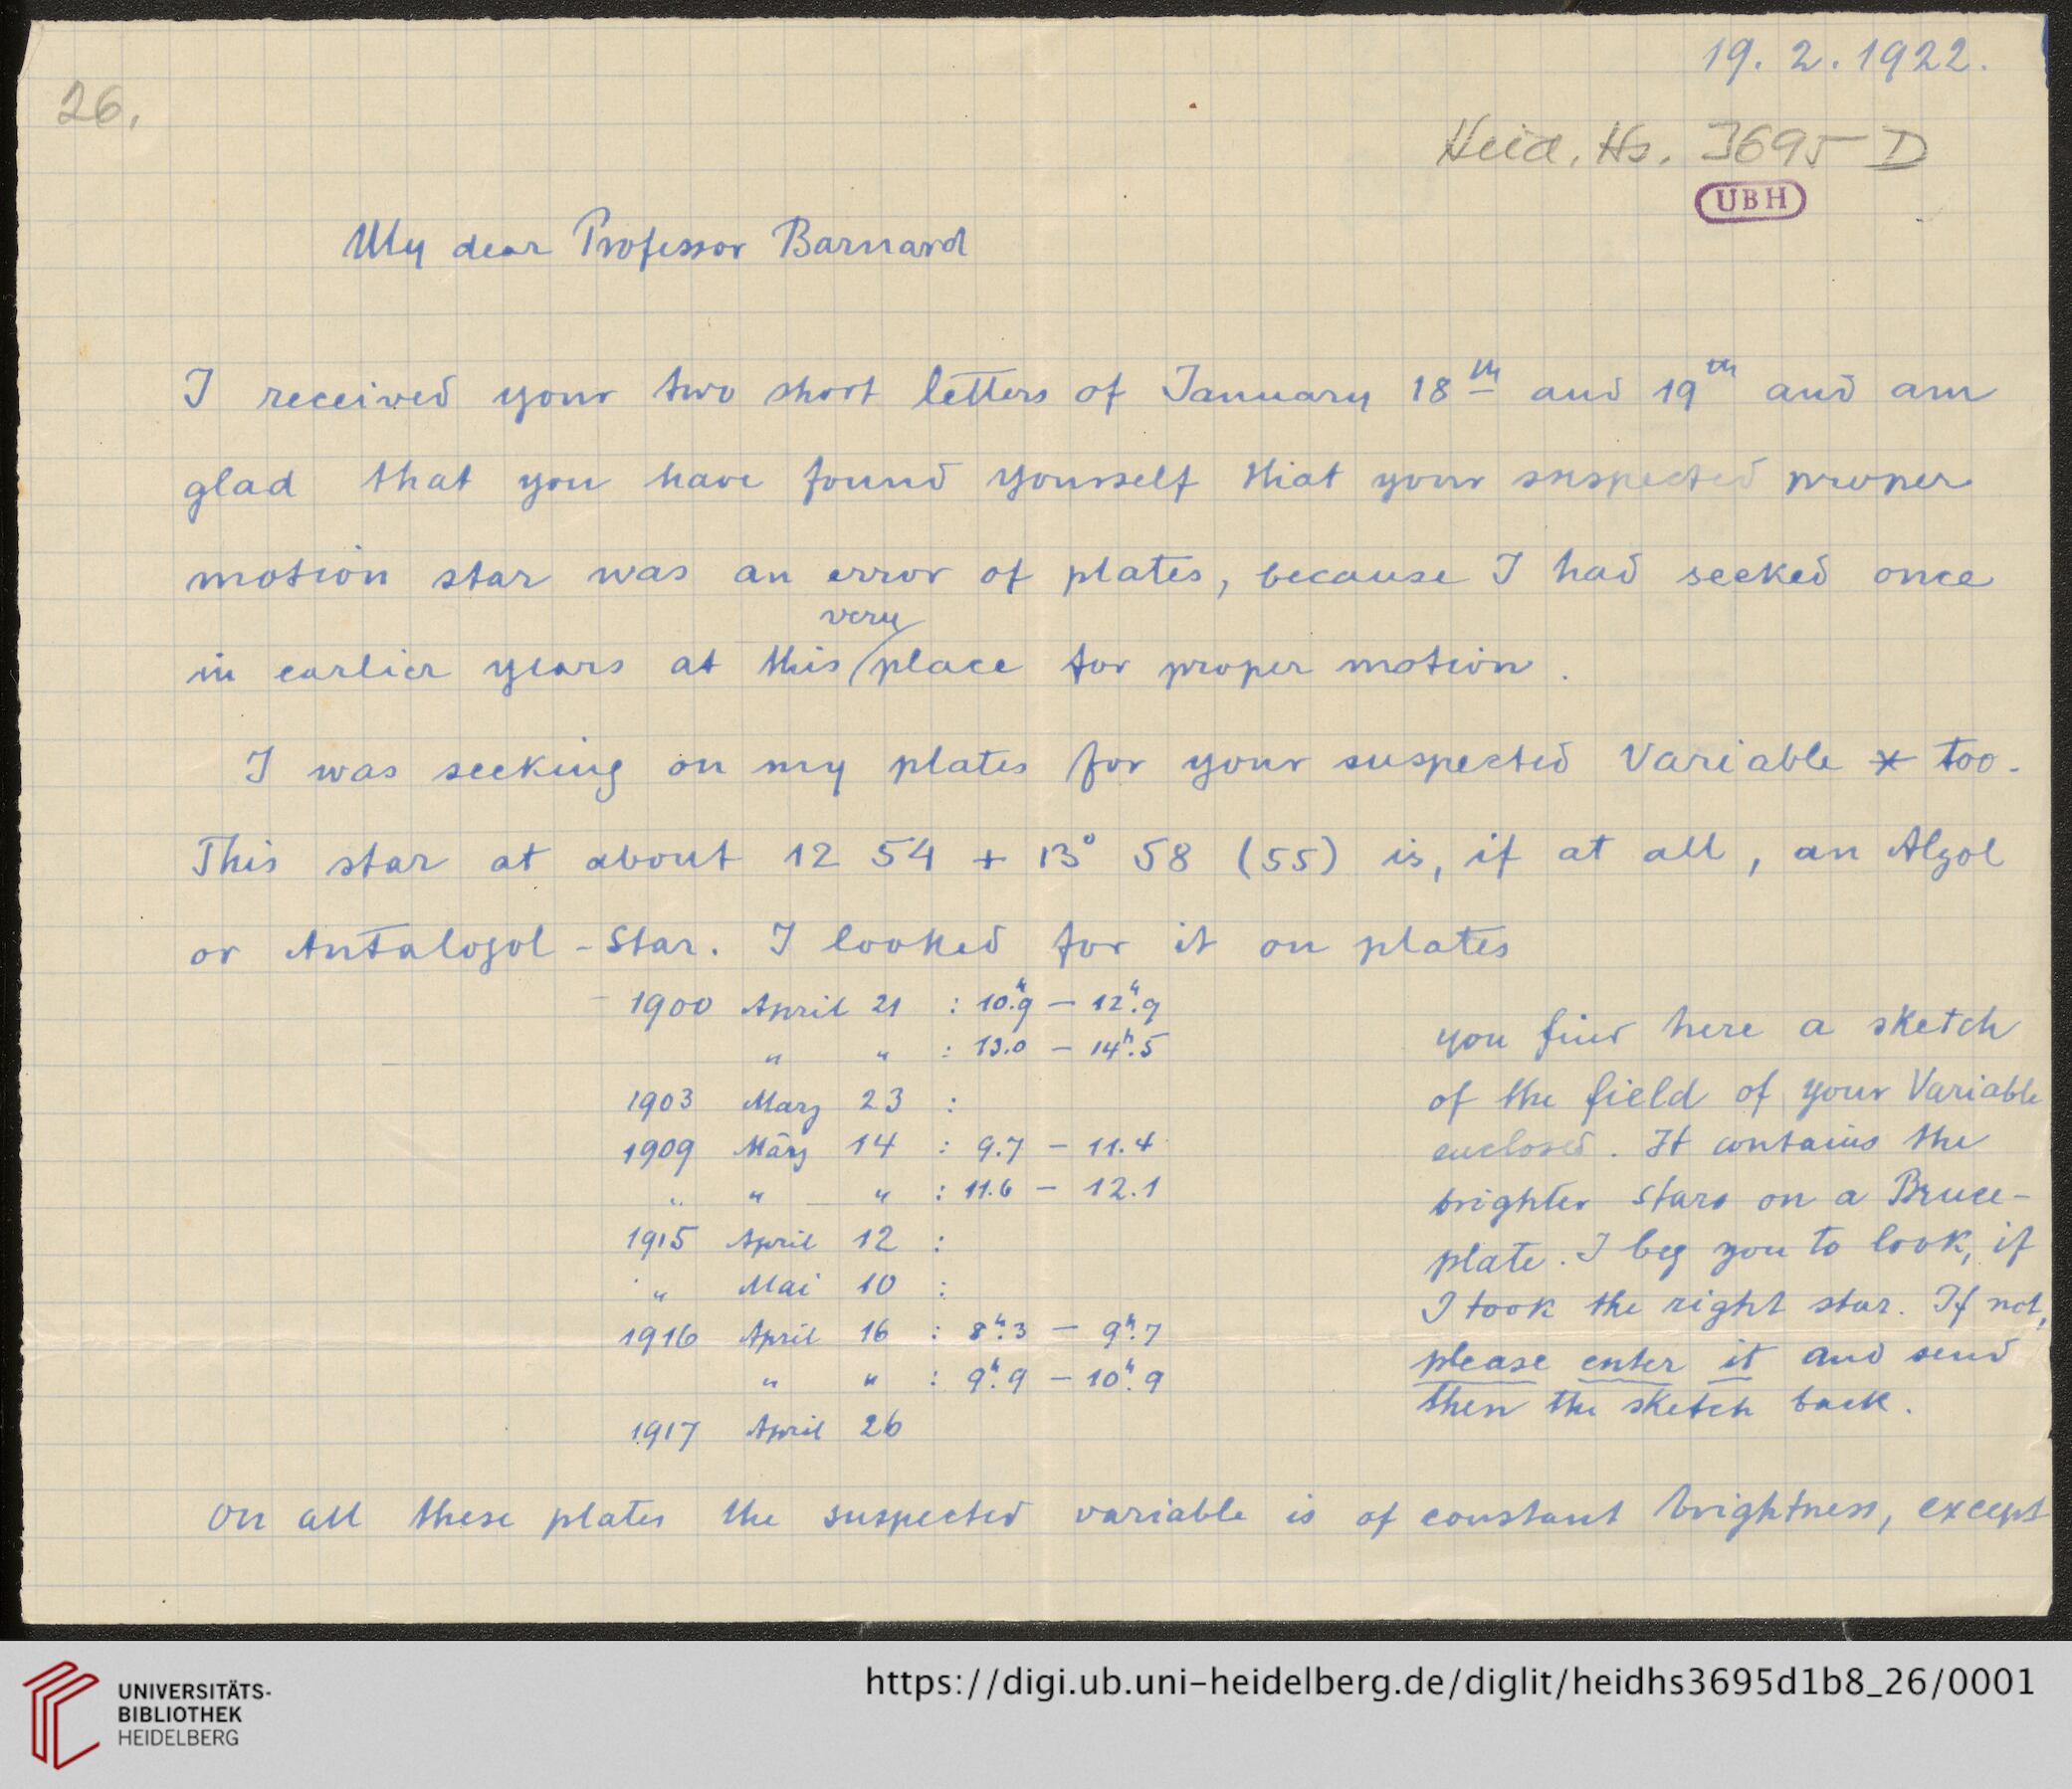 19. 2. 1922.
26.
Heid. Hs. 3695 D
UBH
My dear Professor Barnard
I received your two short letters of January 18th and 19th and am
glad that you have found yourself that your suspected proper
motion star was an error of plates, because I had seeked once
very
in earlier years at this place for proper motion.
I was seeking on my plates for your suspected Variable * too.
This star at about 12 54 + 13° 58 (55) is, if at all, an Algol
or Antalogol-Star. I looked for it on plates
1900 April 21 : 10.h9 – 12h.9
" " : 13.0 – 14h.5
1903 Marz 23 :
1909 März 14 : 9.7 – 11.4
" " " : 11.6 – 12.1
1915 April 12 :
" Mai 10 :
1916 April 16 : 8h.3 – 9h.7
" " : 9h.9 – 10h.9
1917 April 26
you find here a sketch
of the field of your Variable
enclosed. It contains the
brighter stars on a Bruce-
plate. I beg you to look, if
I took the right star. If not,
please enter it and send
then the sketch back.
on all these plates the suspected variable is of constant brightness, except
UNIVERSITÄTS-
BIBLIOTHEK
HEIDELBERG
https://digi.ub.uni-heidelberg.de/diglit/heidhs3695d1b8_26/0001